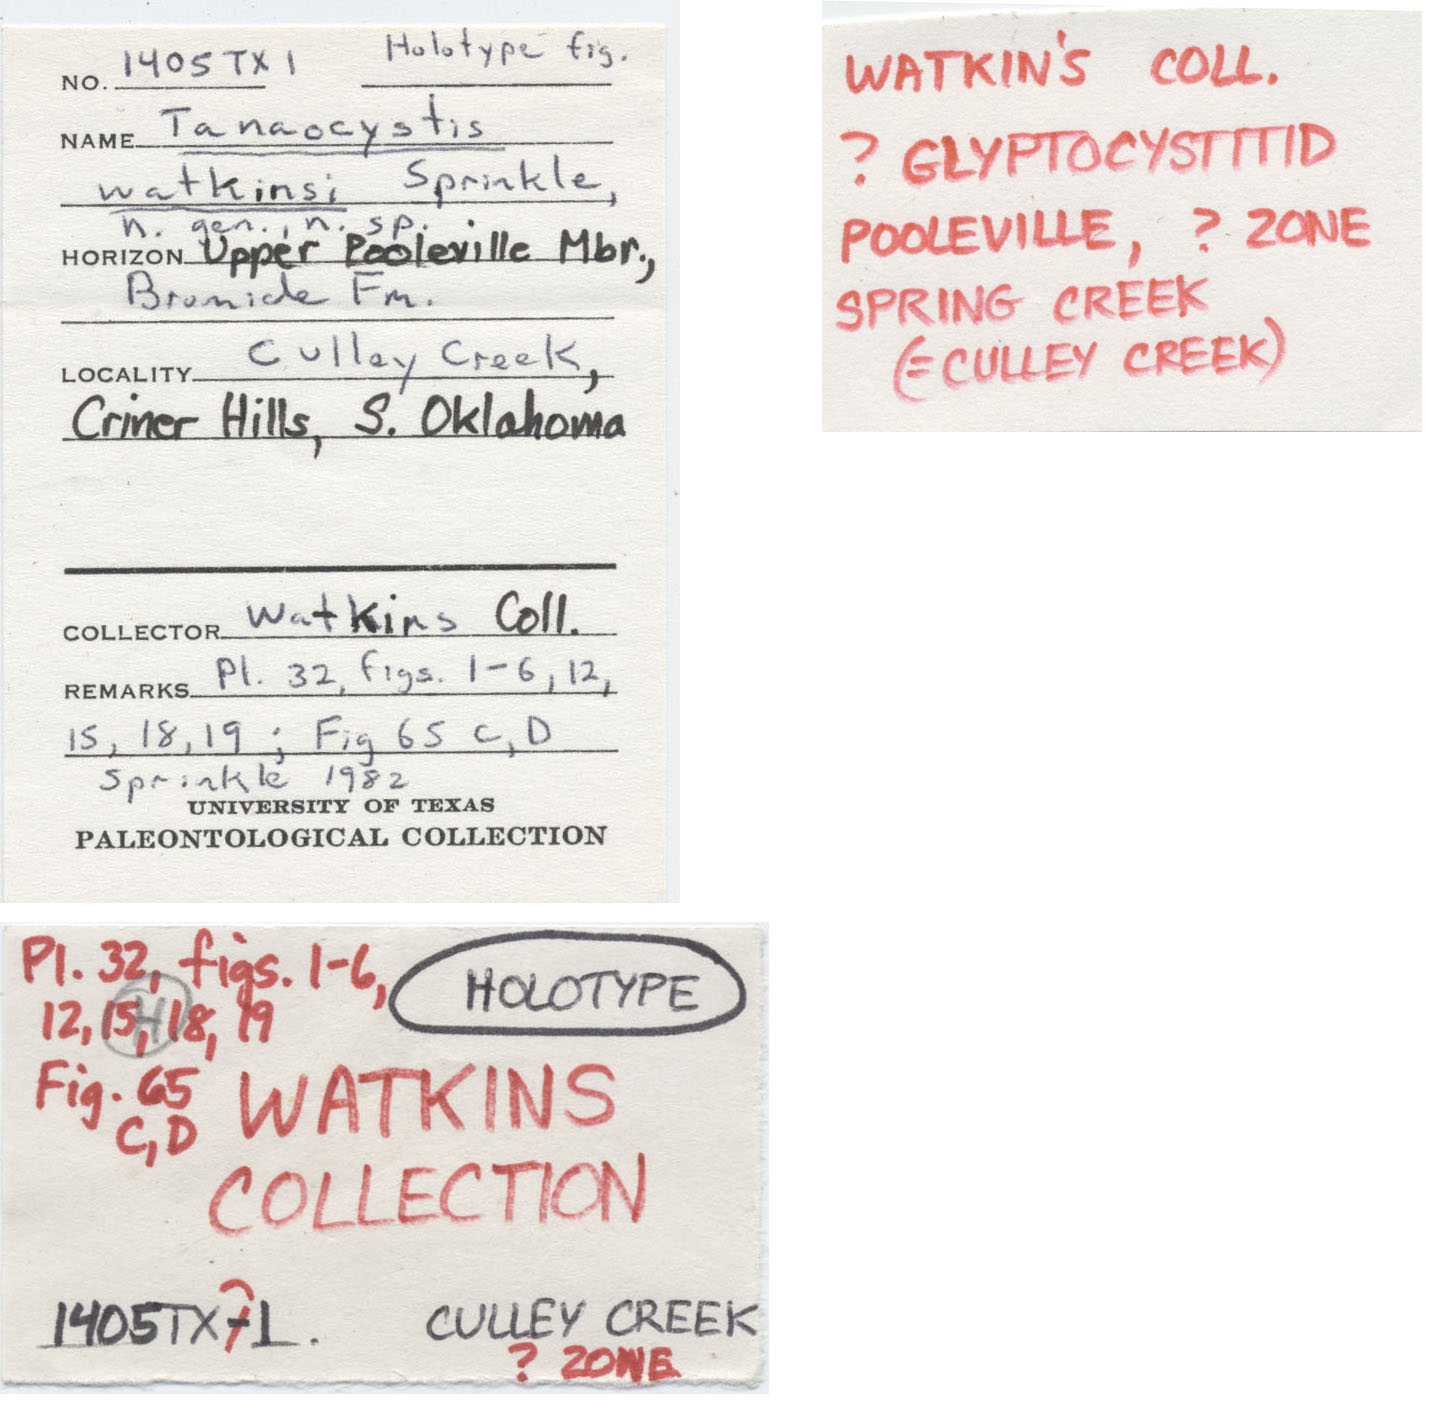 NO. 1405TX1 Holotype fig.
NAME Tanaocystis
watkinsi Sprinkle,
n. gen., n. sp.
HORIZON Upper Pooleville Mbr.,
Bromide Fm.
LOCALITY Culley Creek,
Criner Hills, S. Oklahoma
COLLECTOR Watkins Coll.
REMARKS Pl. 32, figs. 1-6, 12,
15, 18, 19 ; Fig 65 C, D
Sprinkle 1982
UNIVERSITY OF TEXAS
PALEONTOLOGICAL COLLECTION
WATKIN'S COLL.
? GLYPTOCYSTITID
POOLEVILLE, ? ZONE
SPRING CREEK
(=CULLEY CREEK)
Pl. 32, figs. 1-6,
12, 15, 18, 19
H
Fig. 65
C, D
HOLOTYPE
WATKINS
COLLECTION
1405TX-1.
CULLEY CREEK
? ZONE